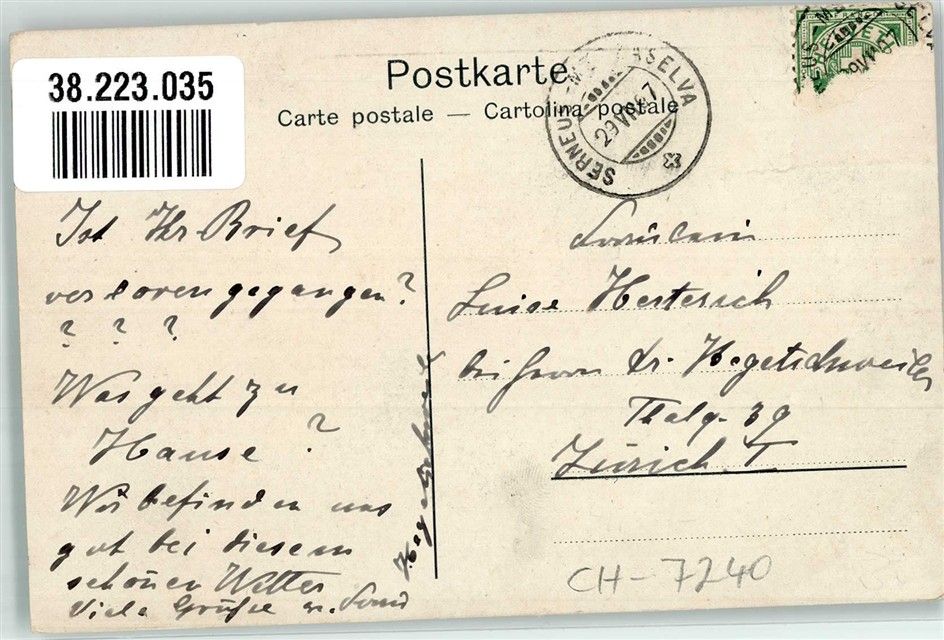 38.223.035
Postkarte
Carte postale — Cartolina postale
SERNEUS-M ASELVA
29 VII 07
Ist Ihr Brief
verloren gegangen?
? ? ?
Was geht zu
Hause ?
Wir befinden uns
gut bei diesem
schönen Wetter
Viele Grüsse
Hegetschweiler
Fräulein
Luise Herterich
bei Herrn Dr. Hegetschweiler
Thalg. 39
Zürich I
CH-7240